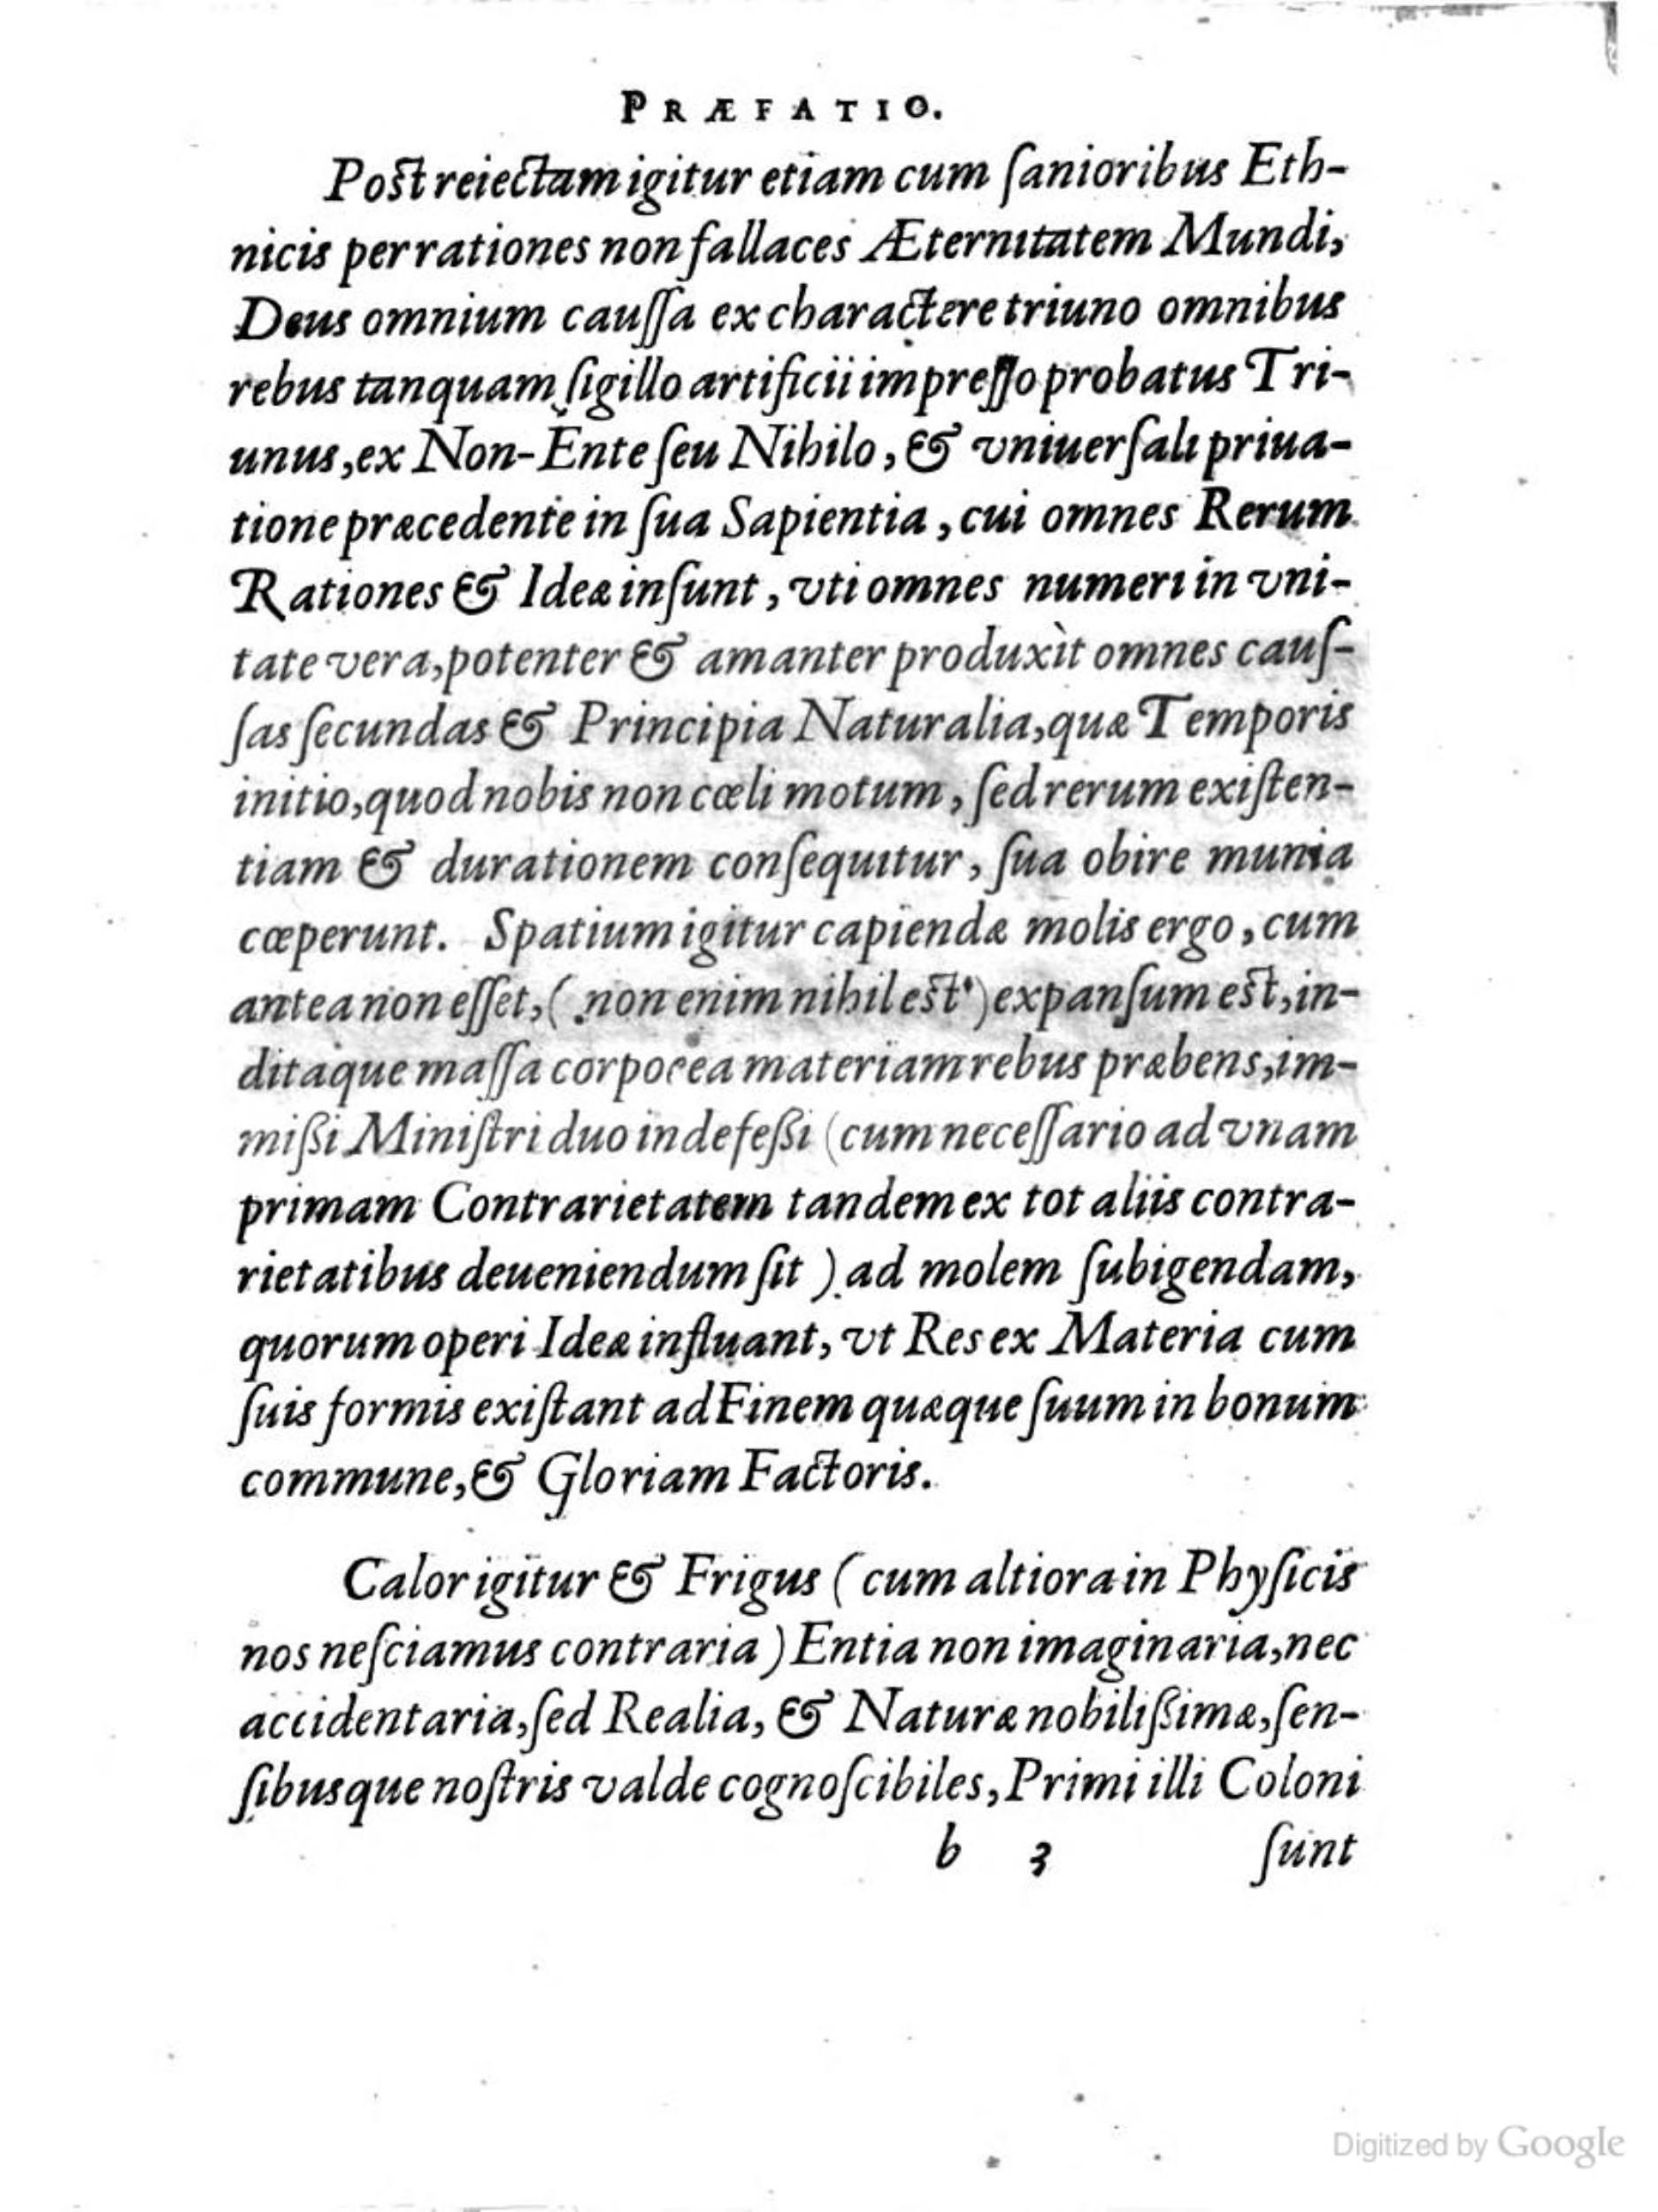 PRÆFATIO.
Poſt reiectam igitur etiam cum ſanioribus Eth-
nicis per rationes non fallaces Æternitatem Mundi,
Deus omnium cauſſa ex charactere triuno omnibus
rebus tanquam ſigillo artificii impreſſo probatus Tri-
unus, ex Non-Ente ſeu Nihilo, & vniuerſali priua-
tione præcedente in ſua Sapientia, cui omnes Rerum
Rationes & Ideæ inſunt, vti omnes numeri in vni-
tate vera, potenter & amanter produxìt omnes cauſ-
ſas ſecundas & Principia Naturalia, quæ Temporis
initio, quod nobis non cœli motum, ſed rerum exiſten-
tiam & durationem conſequitur, ſua obire munia
cœperunt. Spatium igitur capiendæ molis ergo, cum
antea non eſſet, ( non enim nihil eſt ) expanſum eſt, in-
ditaque maſſa corporea materiam rebus præbens, im-
miſsi Miniſtri duo indefeſsi (cum neceſſario ad vnam
primam Contrarietatem tandem ex tot aliis contra-
rietatibus deueniendum ſit ) ad molem ſubigendam,
quorum operi Ideæ influant, vt Res ex Materia cum
ſuis formis exiſtant ad Finem quæque ſuum in bonum
commune, & Gloriam Factoris.
Calor igitur & Frigus ( cum altiora in Phyſicis
nos neſciamus contraria ) Entia non imaginaria, nec
accidentaria, ſed Realia, & Naturæ nobiliſsimæ, ſen-
ſibusque noſtris valde cognoſcibiles, Primi illi Coloni
b 3 ſunt
Digitized by Google